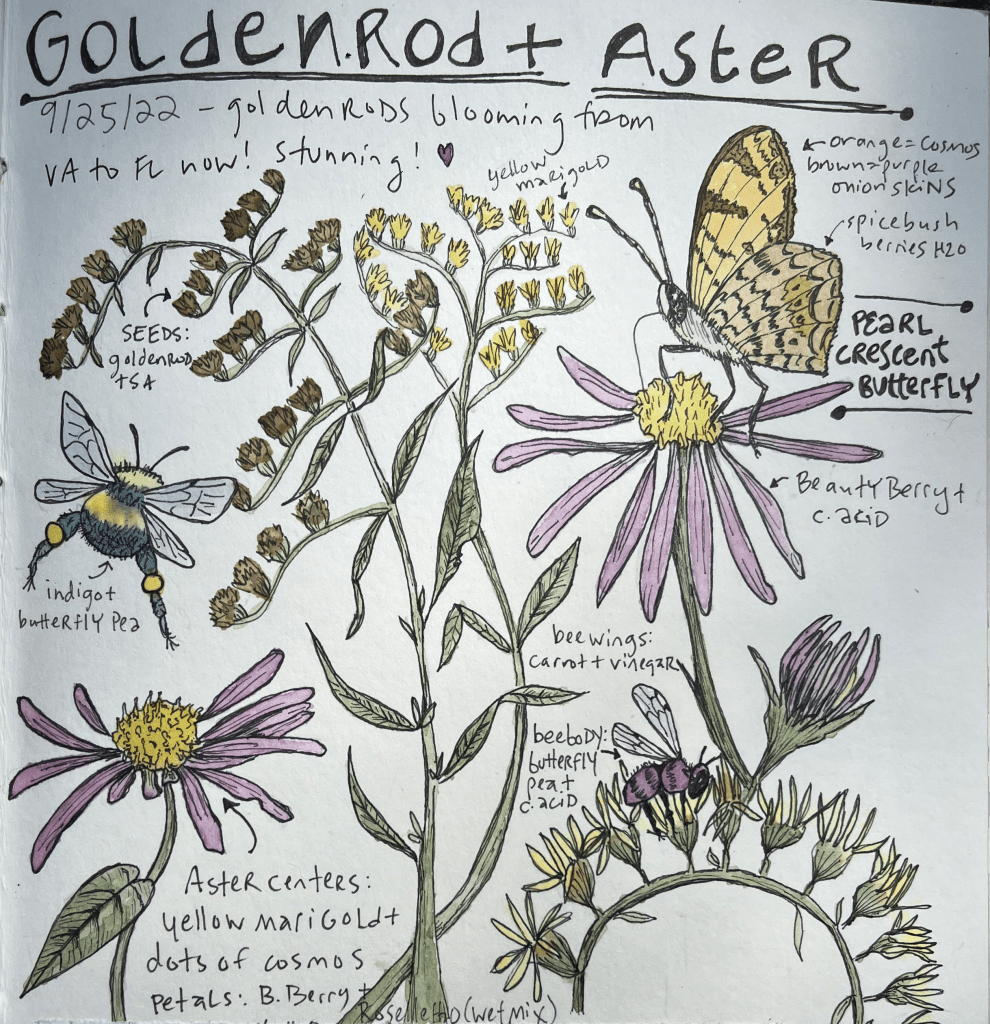 GOLDENROD + ASTER
9/25/22 - goldenRODS blooming from
VA to FL now! Stunning! ♥
yellow
marigolD
orange = cosmos
brown = purple
onion skins
spicebush
berries H2O
SEEDS:
goldenrod
+ SA
PEARL
CRESCENT
BUTTERFLY
BeautyBerry +
c. acid
indigo +
butterfly pea
bee wings:
carrot + vinegar
bee boDy:
butterfly
pea +
c. acid
Aster centers:
yellow mariGolD +
dots of cosmos
petals: B. Berry +
(wet mix)